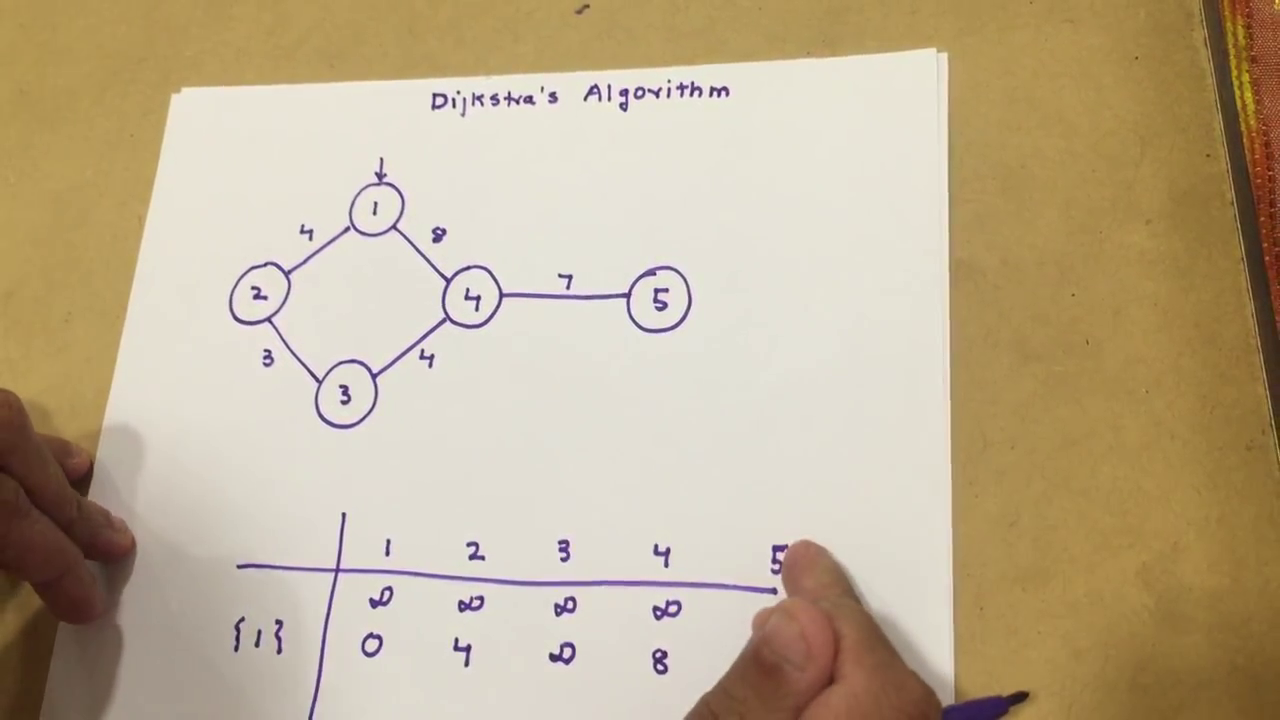 Dijkstra's Algorithm
1
4 8
2 4 7 5
3 4
3
1 2 3 4 5
∞ ∞ ∞ ∞
{1} 0 4 ∞ 8